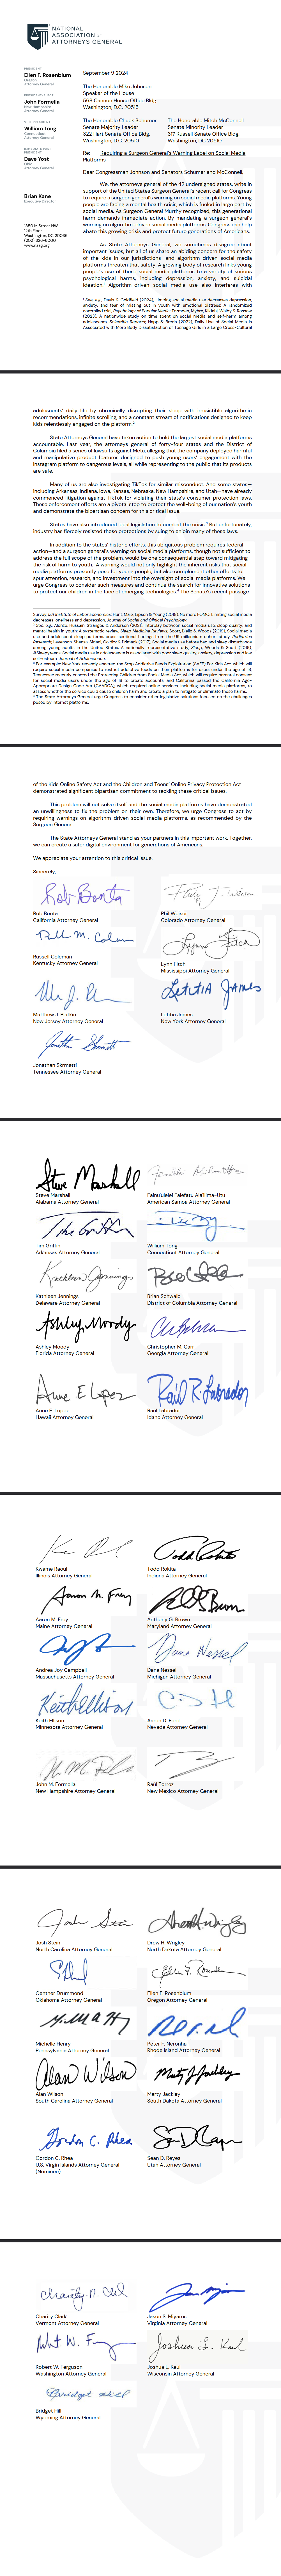 NATIONAL
ASSOCIATION OF
ATTORNEYS GENERAL
PRESIDENT
Ellen F. Rosenblum
Oregon
Attorney General
PRESIDENT-ELECT
John Formella
New Hampshire
Attorney General
VICE PRESIDENT
William Tong
Connecticut
Attorney General
IMMEDIATE PAST
PRESIDENT
Dave Yost
Ohio
Attorney General
Brian Kane
Executive Director
1850 M Street NW
12th Floor
Washington, DC 20036
(202) 326-6000
www.naag.org
September 9 2024
The Honorable Mike Johnson
Speaker of the House
568 Cannon House Office Bldg.
Washington, D.C. 20515
The Honorable Chuck Schumer
Senate Majority Leader
322 Hart Senate Office Bldg.
Washington, D.C. 20510
The Honorable Mitch McConnell
Senate Minority Leader
317 Russell Senate Office Bldg.
Washington, DC 20510
Re: Requiring a Surgeon General's Warning Label on Social Media
Platforms
Dear Congressman Johnson and Senators Schumer and McConnell,
We, the attorneys general of the 42 undersigned states, write in
support of the United States Surgeon General's recent call for Congress
to require a surgeon general's warning on social media platforms. Young
people are facing a mental health crisis, which is fueled in large part by
social media. As Surgeon General Murthy recognized, this generational
harm demands immediate action. By mandating a surgeon general's
warning on algorithm-driven social media platforms, Congress can help
abate this growing crisis and protect future generations of Americans.
As State Attorneys General, we sometimes disagree about
important issues, but all of us share an abiding concern for the safety
of the kids in our jurisdictions—and algorithm-driven social media
platforms threaten that safety. A growing body of research links young
people's use of those social media platforms to a variety of serious
psychological harms, including depression, anxiety, and suicidal
ideation.¹ Algorithm-driven social media use also interferes with
¹ See, e.g., Davis & Goldfield (2024), Limiting social media use decreases depression,
anxiety, and fear of missing out in youth with emotional distress: A randomized
controlled trial, Psychology of Popular Media; Tørmoen, Myhre, Kildahl, Walby & Rossow
(2023), A nationwide study on time spent on social media and self-harm among
adolescents, Scientific Reports; Nagp & Breda (2022), Daily Use of Social Media Is
Associated with More Body Dissatisfaction of Teenage Girls in a Large Cross-Cultural
adolescents' daily life by chronically disrupting their sleep with irresistible algorithmic
recommendations, infinite scrolling, and a constant stream of notifications designed to keep
kids relentlessly engaged on the platform.²
State Attorneys General have taken action to hold the largest social media platforms
accountable. Last year, the attorneys general of forty-five states and the District of
Columbia filed a series of lawsuits against Meta, alleging that the company deployed harmful
and manipulative product features designed to push young users' engagement with the
Instagram platform to dangerous levels, all while representing to the public that its products
are safe.
Many of us are also investigating TikTok for similar misconduct. And some states—
including Arkansas, Indiana, Iowa, Kansas, Nebraska, New Hampshire, and Utah—have already
commenced litigation against TikTok for violating their state's consumer protection laws.
These enforcement efforts play a pivotal step to protect the well-being of our nation's youth
and demonstrate the bipartisan concern for this critical issue.
States have also introduced local legislation to combat the crisis.³ But unfortunately,
industry has fiercely resisted these protections by suing to enjoin many of these laws.
In addition to the states' historic efforts, this ubiquitous problem requires federal
action—and a surgeon general's warning on social media platforms, though not sufficient to
address the full scope of the problem, would be one consequential step toward mitigating
the risk of harm to youth. A warning would not only highlight the inherent risks that social
media platforms presently pose for young people, but also complement other efforts to
spur attention, research, and investment into the oversight of social media platforms. We
urge Congress to consider such measures and continue the search for innovative solutions
to protect our children in the face of emerging technologies.⁴ The Senate's recent passage
of the Kids Online Safety Act and the Children and Teens' Online Privacy Protection Act
demonstrated significant bipartisan commitment to tackling these critical issues.
This problem will not solve itself and the social media platforms have demonstrated
an unwillingness to fix the problem on their own. Therefore, we urge Congress to act by
requiring warnings on algorithm-driven social media platforms, as recommended by the
Surgeon General.
The State Attorneys General stand as your partners in this important work. Together,
we can create a safer digital environment for generations of Americans.
We appreciate your attention to this critical issue.
Sincerely,
Rob Bonta
California Attorney General
Phil Weiser
Colorado Attorney General
Russell Coleman
Kentucky Attorney General
Lynn Fitch
Mississippi Attorney General
Matthew J. Platkin
New Jersey Attorney General
Letitia James
New York Attorney General
Jonathan Skrmetti
Tennessee Attorney General
Steve Marshall
Alabama Attorney General
Fainu'ulelei Falefatu Ala'ilima-Utu
American Samoa Attorney General
Tim Griffin
Arkansas Attorney General
William Tong
Connecticut Attorney General
Kathleen Jennings
Delaware Attorney General
Brian Schwalb
District of Columbia Attorney General
Ashley Moody
Florida Attorney General
Christopher M. Carr
Georgia Attorney General
Anne E. Lopez
Hawaii Attorney General
Raúl Labrador
Idaho Attorney General
Kwame Raoul
Illinois Attorney General
Todd Rokita
Indiana Attorney General
Aaron M. Frey
Maine Attorney General
Anthony G. Brown
Maryland Attorney General
Andrea Joy Campbell
Massachusetts Attorney General
Dana Nessel
Michigan Attorney General
Keith Ellison
Minnesota Attorney General
Aaron D. Ford
Nevada Attorney General
John M. Formella
New Hampshire Attorney General
Raúl Torrez
New Mexico Attorney General
Josh Stein
North Carolina Attorney General
Drew H. Wrigley
North Dakota Attorney General
Gentner Drummond
Oklahoma Attorney General
Ellen F. Rosenblum
Oregon Attorney General
Michelle Henry
Pennsylvania Attorney General
Peter F. Neronha
Rhode Island Attorney General
Alan Wilson
South Carolina Attorney General
Marty Jackley
South Dakota Attorney General
Gordon C. Rhea
U.S. Virgin Islands Attorney General
(Nominee)
Sean D. Reyes
Utah Attorney General
Charity Clark
Vermont Attorney General
Jason S. Miyares
Virginia Attorney General
Robert W. Ferguson
Washington Attorney General
Joshua L. Kaul
Wisconsin Attorney General
Bridget Hill
Wyoming Attorney General